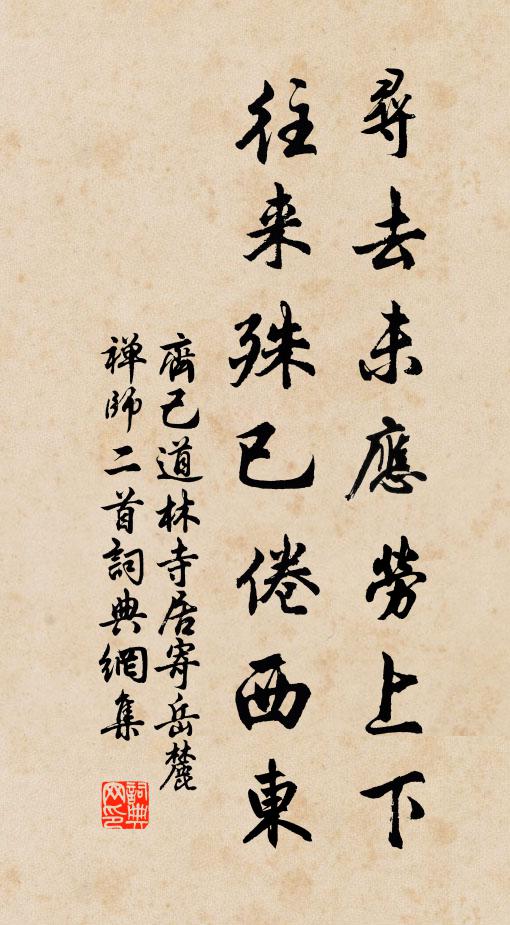 尋去未應勞上下
往来殊已倦西東
齊己道林寺居寄岳麓
禅師二首詞典網集
詞典网印